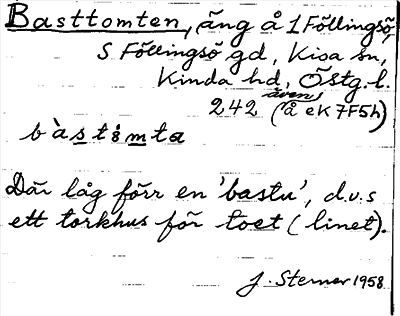 Basttomten, äng å 1 Föllingsö,
S Föllingsö gd, Kisa sn,
Kinda hd, Östg. l.
även
242 (å ek 7F5h)
bàstòmta
Där låg förr en 'bastu', d.v.s
ett torkhus för toet (linet).
J. Sterner 1958